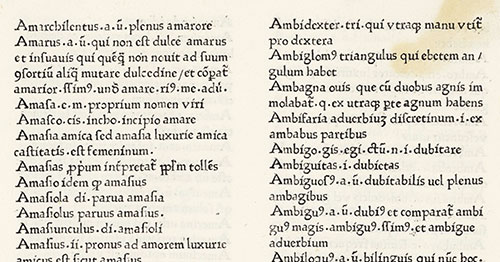 Amarchilentus.a.ū.plenus amarore
Amarus.a.ū.qui non est dulce amarus
et insuauis qui quēq̄ non nouit ad suum
ꝯsortiū aliq̄ mutare dulcedine/et cōpat̄
amarior.ssimꝰ.unđ amare.riꝰ.me.adū.
Amasa.e.m.proprium nomen viri
Amasco.cis.incho.incipio amare
Amasia amica sed amasia luxurie amica
castitatis.est femeninum.
Amasias ꝓpriū intp̄retat̄ ppl̄m tollēs
Amasio idem qđ amasius
Amasiola di.parua amasia
Amasiolus paruus amasius.
Amasiunculus di.amasoli
Amasius.ii.pronus ad amorem luxurie
amicus est sicut amasius
Ambidexter.tri.qui vtraq; manu vtit̄
pro dextera
Ambiglomꝰ triangulus qui ebetem an/
gulum habet
Ambagna ouis que cū duobus agnis im
molabat̄.q.ex utraq; pte agnum habens
Ambifaria aduerbiuʒ discretinum.i.ex
ambabus partibus
Ambigo.gis.egi.ctū.n.i.dubitare
Ambiguitas.i.dubietas
Ambiguosꝰ.a.ū.dubitabilis uel plenus
ambagibus
Ambiguꝰ.a.ū.dubiꝰ et comparat̄ ambi
guꝰ magis.ambiguꝰ.ssimꝰ.et ambigue
aduerbium
Ambiloquꝰ.a.ū.bilinguis qui nūc hoc.